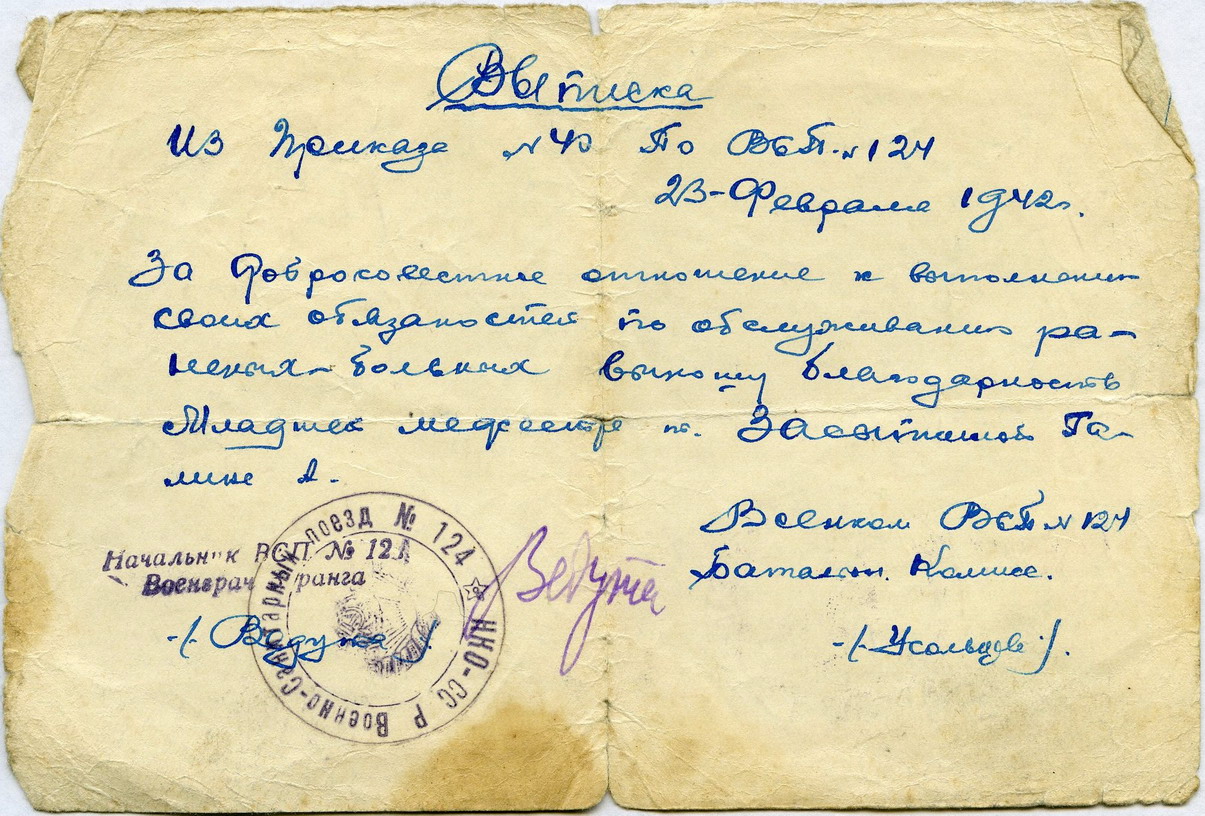 Выписка
Из Приказа №40 По ВСП.№124
23-Февраля 1942г.
За Добросовестное отношение к выполнению
своих обязаностей по обслуживанию ра-
неных-больных выношу благодарность
Младшей медсестре т. Засыпкиной Га-
лине А.
Военком ВСП №124
Баталион. Комисс.
-(Усольцев).
Начальник ВСП № 124
Военврач ранга
-(Ведута).
Ведута
Военно-Санитарный поезд № 124 НКО-СССР